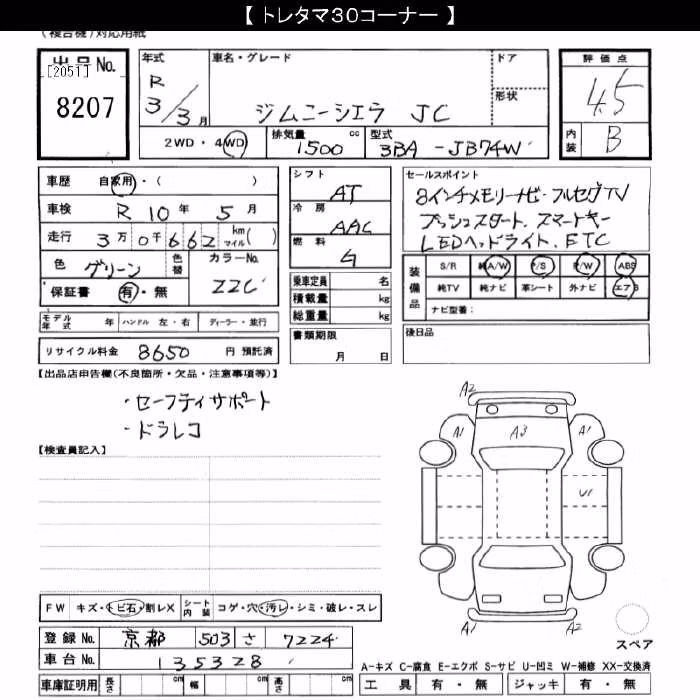 【 トレタマ30コーナー 】
(複合機)対応用紙
出品No.
[2051]
8207
年式
R
3/3月
車名・グレード
ジムニーシエラ JC
ドア
形状
2WD・4WD
排気量 cc
1500
型式
3BA -JB74W
評価点
4.5
内装
B
車歴 自家用・( )
車検 R 10年 5月
走行 3万0千662 km マイル( )
色 グリーン 色替
カラーNo.
ZZC
保証書 有・無
モデル年式 年 ハンドル 左・右 ディーラー・並行
リサイクル料金 8650 円 預託済
シフト
AT
冷房
AAC
燃料
G
乗車定員 名
積載量 kg
総重量 kg
書類期限
月 日
セールスポイント
8インチメモリーナビ・フルセグTV
プッシュスタート、スマートキー
LEDヘッドライト、ETC
装備品
S/R 純A/W P/S P/W ABS
純TV 純ナビ 革シート 外ナビ エアB
ナビ型番:
後日品
【出品店申告欄(不良箇所・欠品・注意事項等)】
・セーフティサポート
・ドラレコ
【検査員記入】
A2
A1 A3 A1
U1
A1 A2
スペア
FW キズ・トビ石・割レX シート内装 コゲ・穴・汚レ・シミ・破レ・スレ
登録No. 京都 503 さ 7224
車台No. 135328
車庫証明用 長さ cm 幅 cm 高さ cm
A−キズ C−腐食 E−エクボ S−サビ U−凹ミ W−補修 XX−交換済
工具 有・無 ジャッキ 有・無